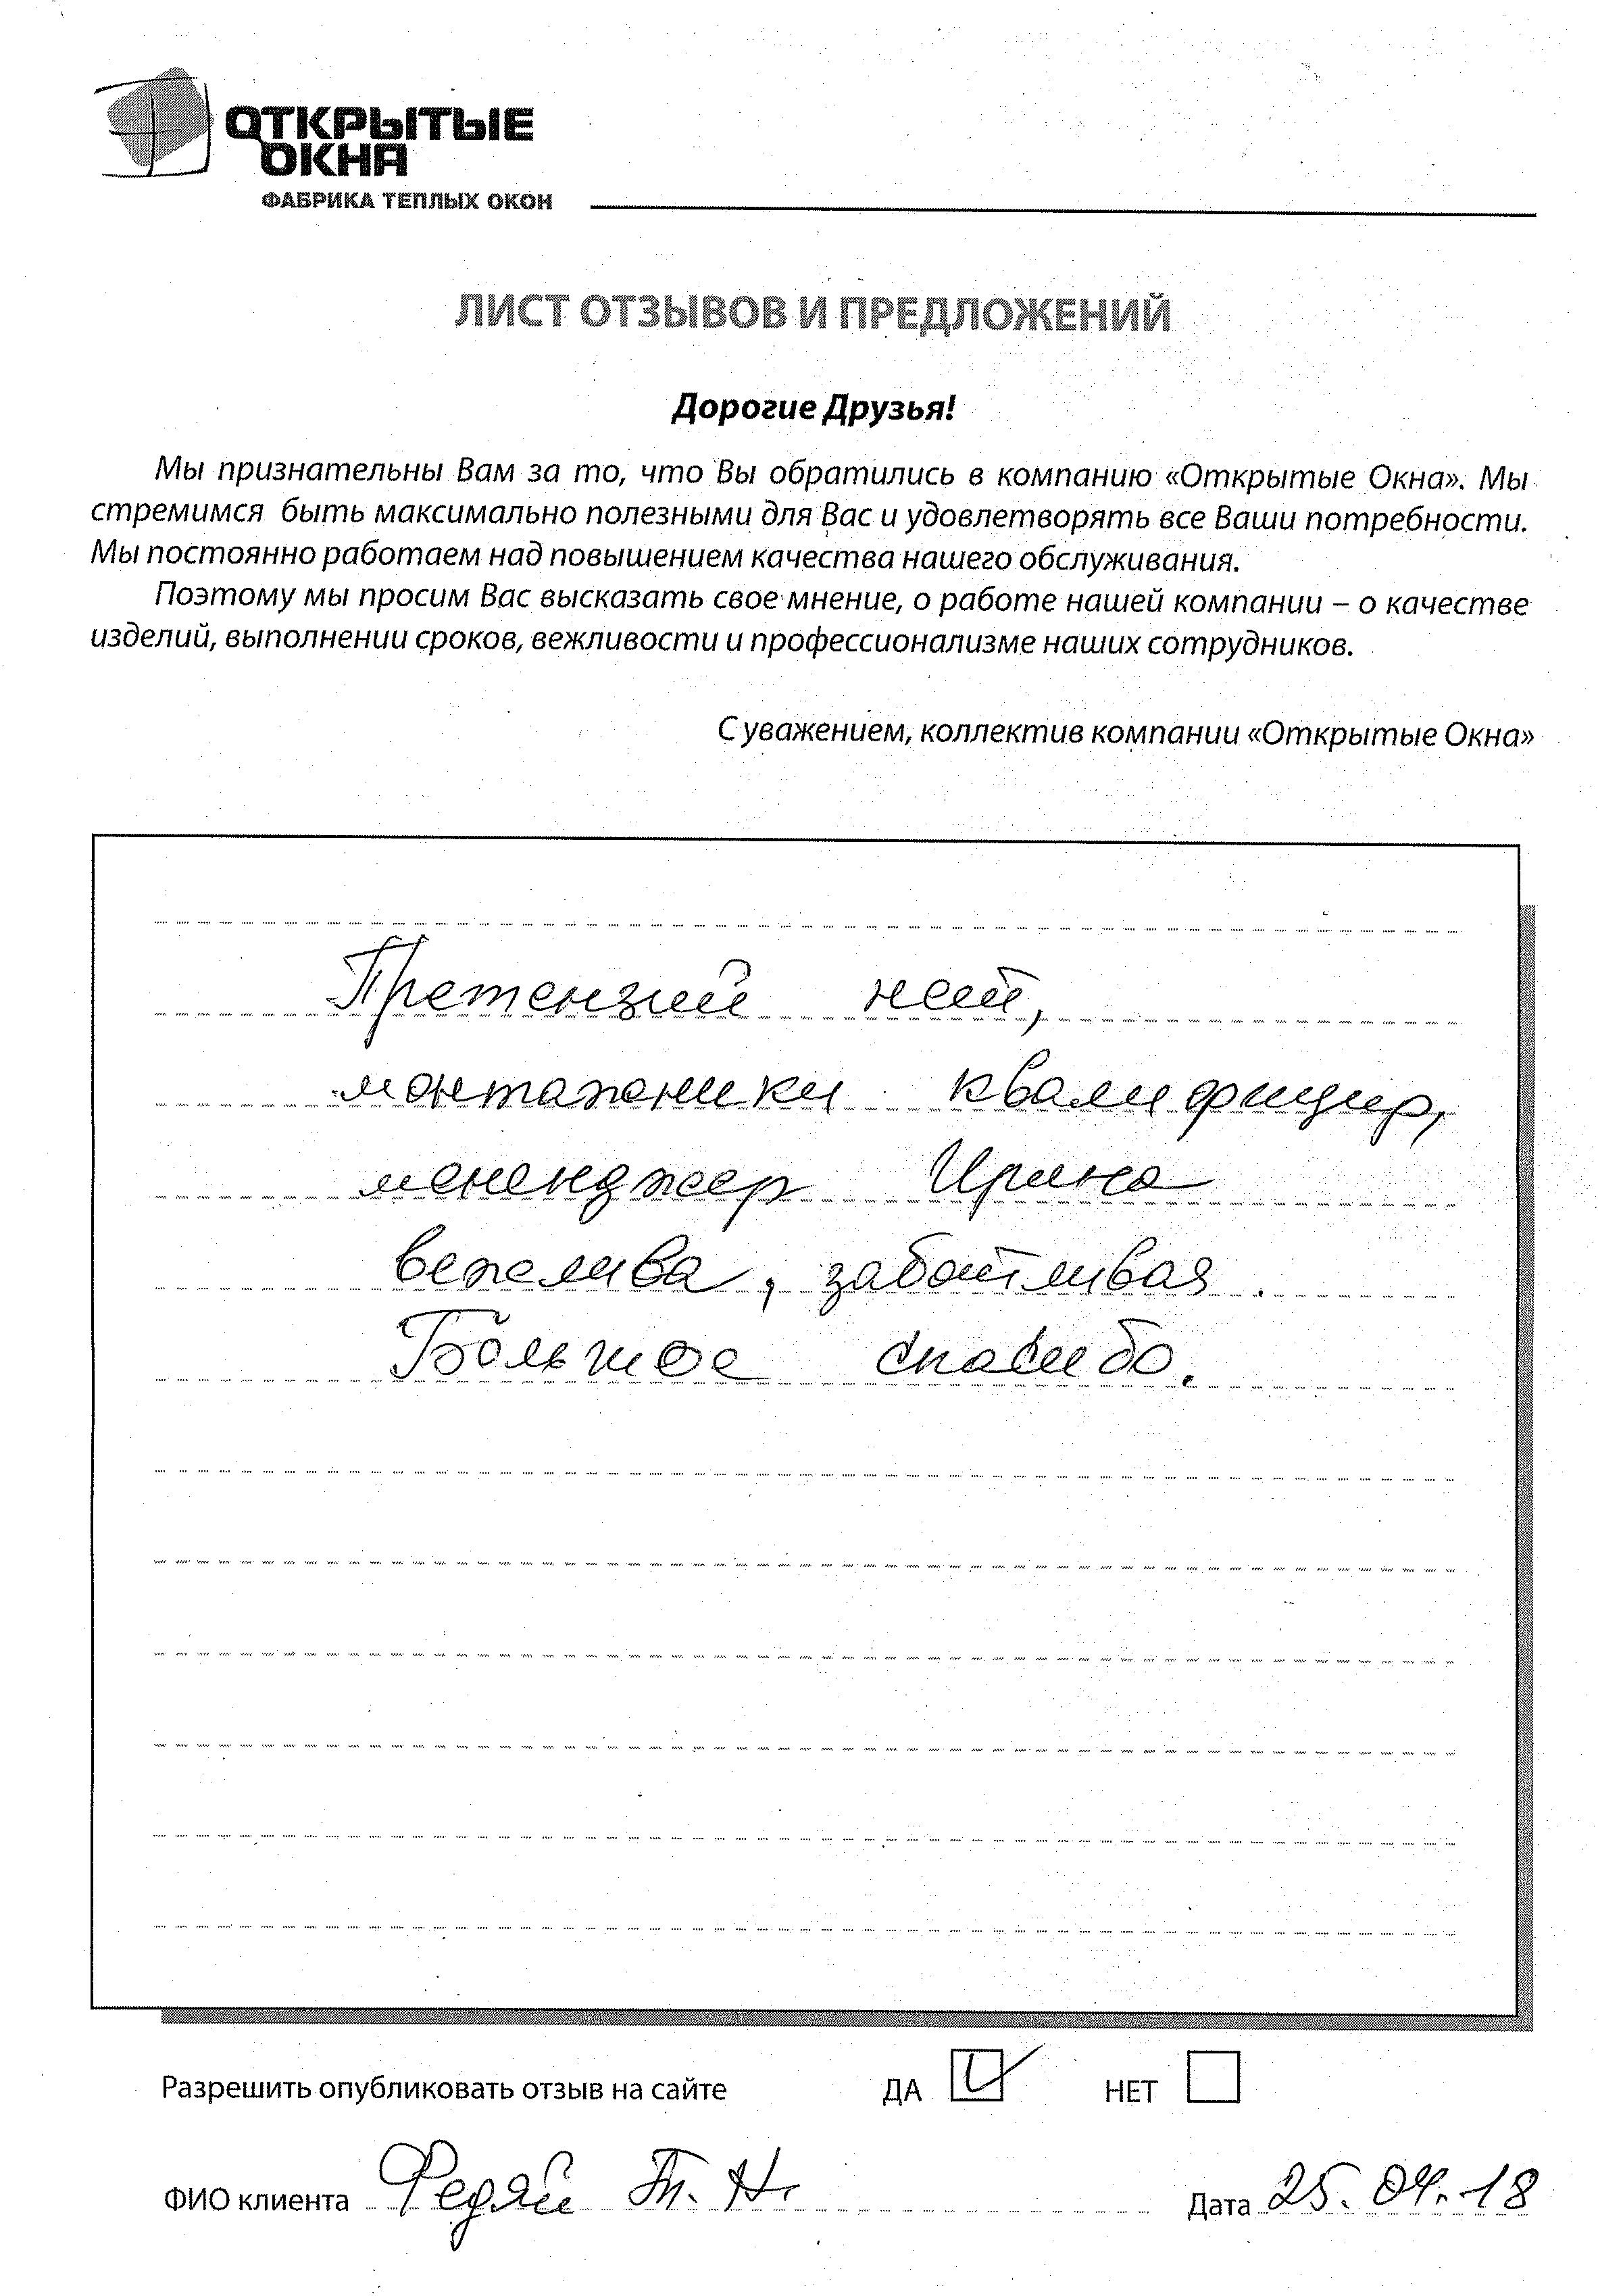 ОТКРЫТЫЕ
ОКНА
ФАБРИКА ТЕПЛЫХ ОКОН
ЛИСТ ОТЗЫВОВ И ПРЕДЛОЖЕНИЙ
Дорогие Друзья!
Мы признательны Вам за то, что Вы обратились в компанию «Открытые Окна». Мы
стремимся быть максимально полезными для Вас и удовлетворять все Ваши потребности.
Мы постоянно работаем над повышением качества нашего обслуживания.
Поэтому мы просим Вас высказать свое мнение, о работе нашей компании – о качестве
изделий, выполнении сроков, вежливости и профессионализме наших сотрудников.
С уважением, коллектив компании «Открытые Окна»
Претензий нет,
монтажники квалифицир,
мененджер Ирина
вежлива, заботливая.
Большое спасибо.
Разрешить опубликовать отзыв на сайте ДА НЕТ
ФИО клиента Федяй Т. Н. Дата 25.04.18